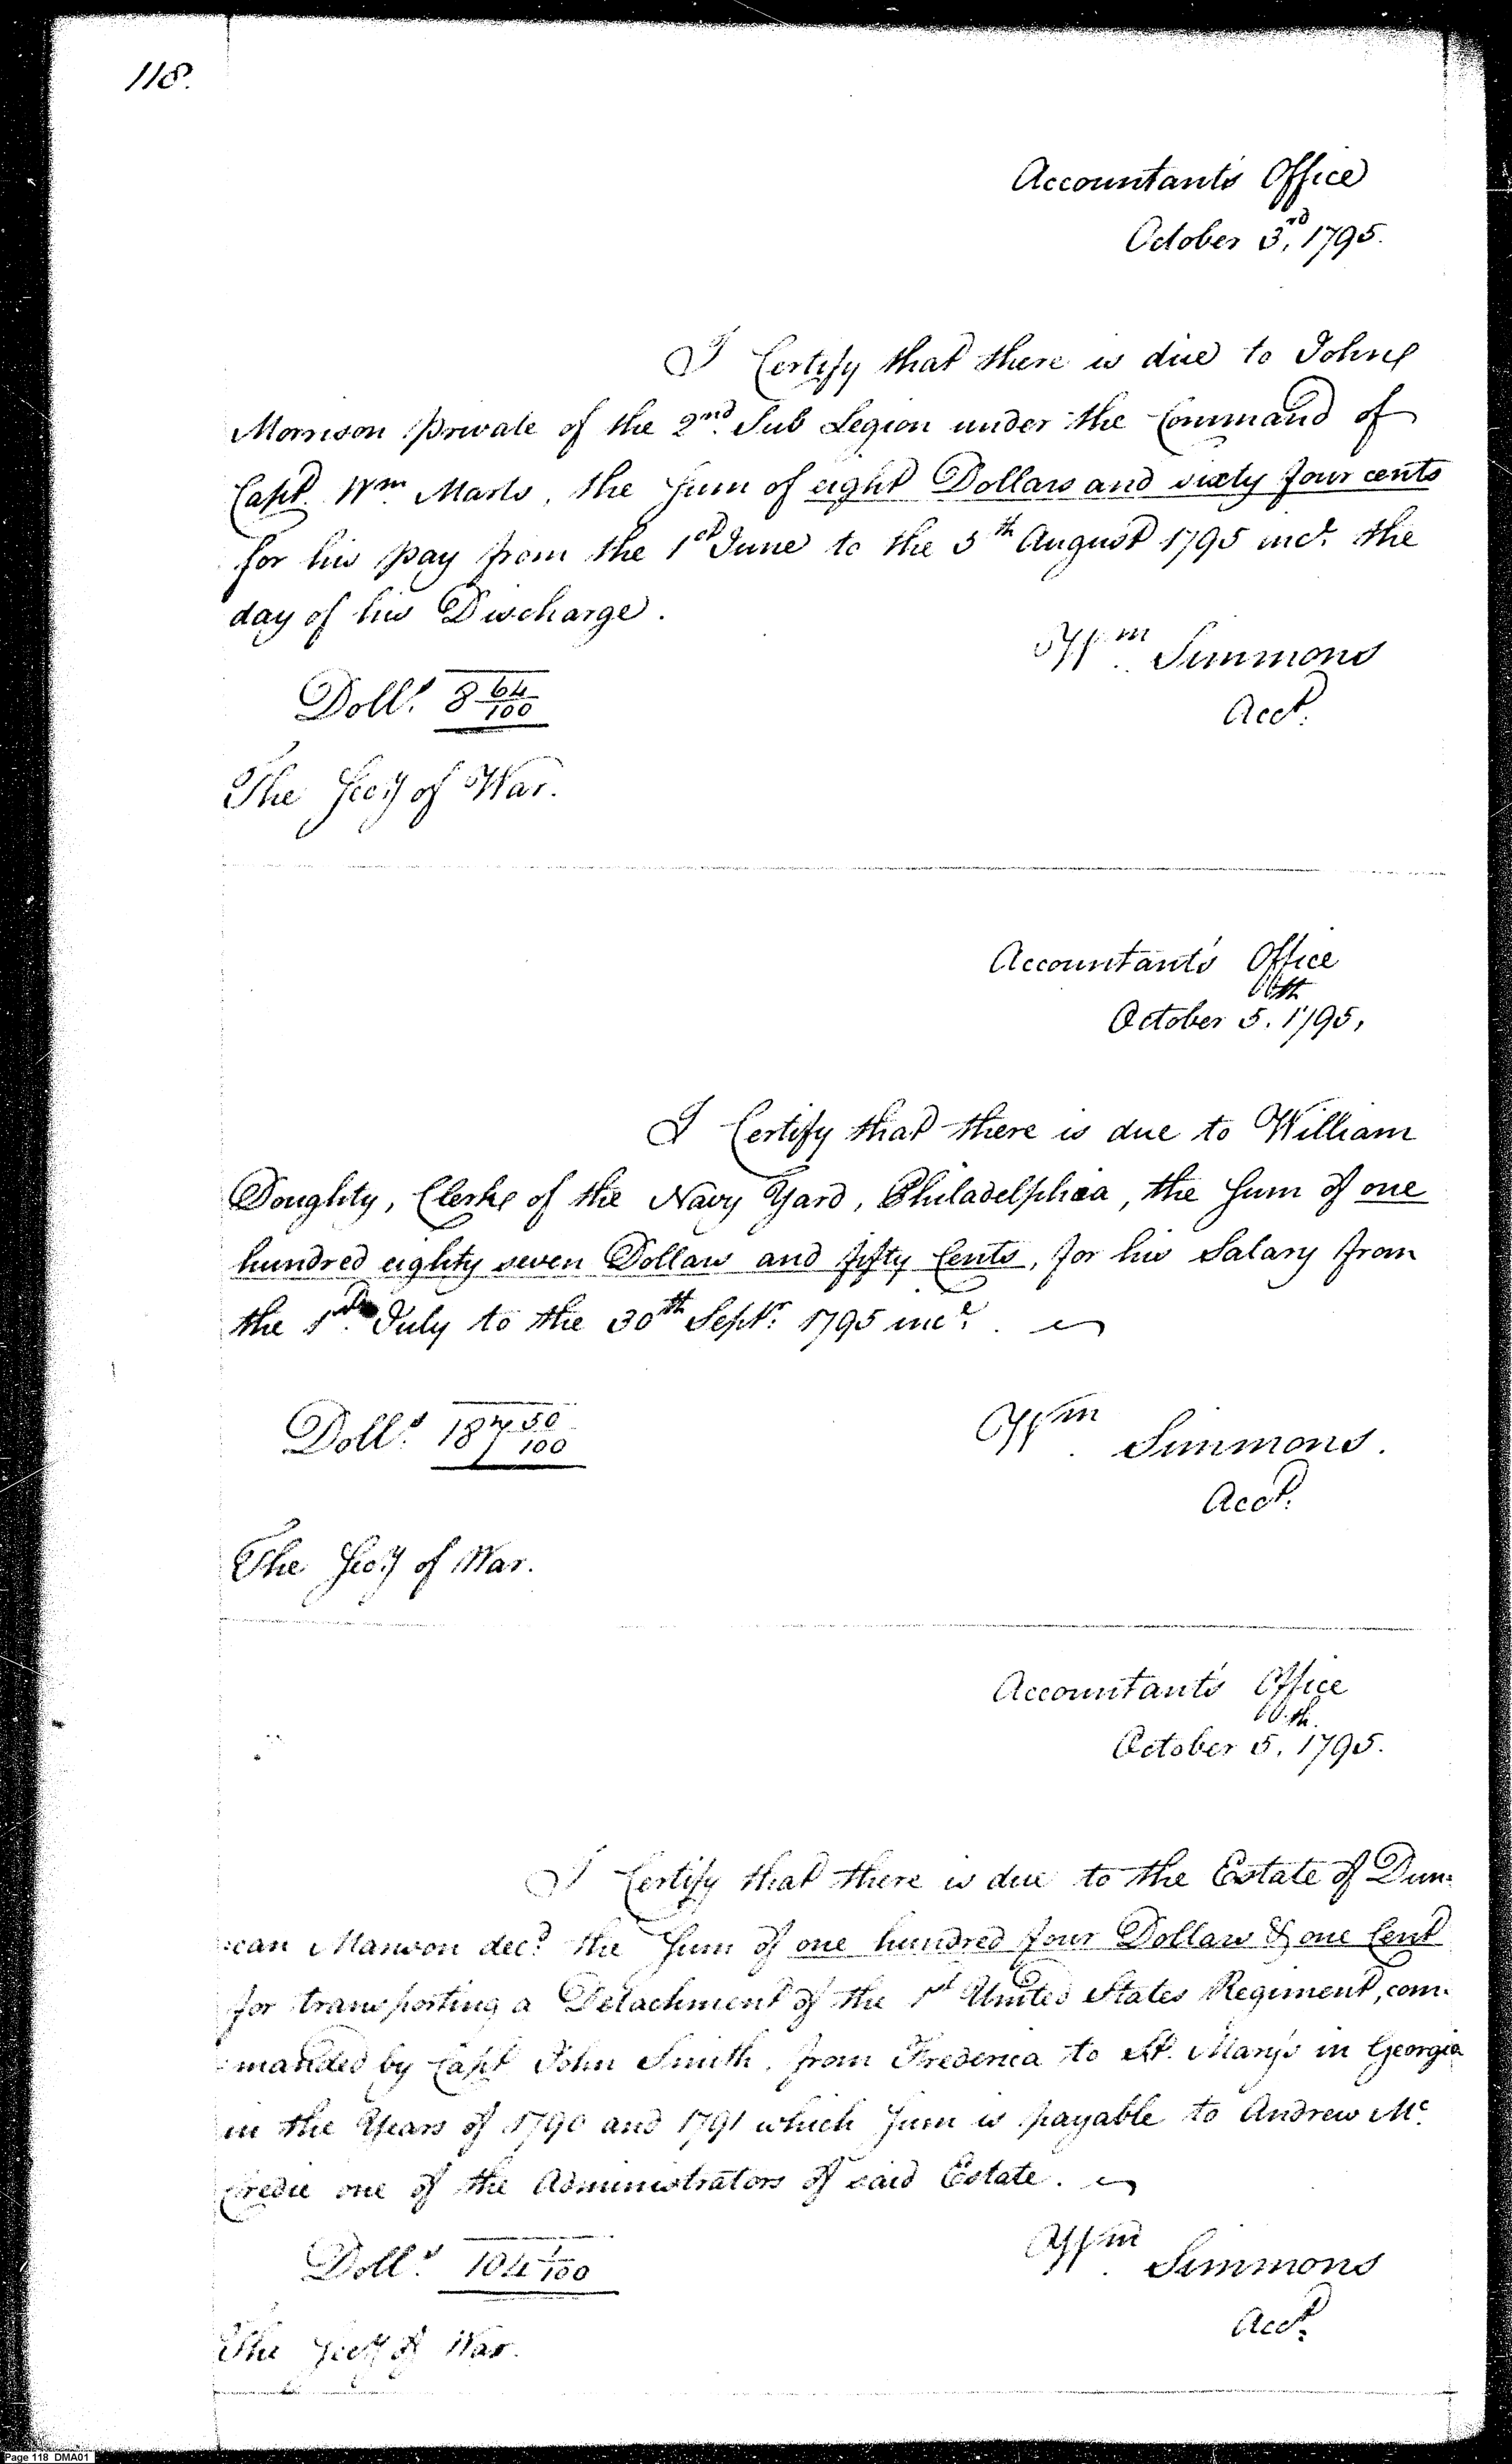 118.
Accountant's Office
October 3rd, 1795.
I Certify that there is due to John
Morrison private of the 2nd Sub Legion under the Command of
Capt. Wm. Marts, the Sum of eight Dollars and sixty four cents
for his pay from the 1st June to the 5th August 1795 incl. the
day of his Discharge.
Wm. Simmons
Doll.s 8 64/100
Acct.
The Secy of War.
Accountant's Office
October 5th. 1795,
I Certify that there is due to William
Doughty, Clerke of the Navy Yard, Philadelphia, the Sum of one
hundred eighty seven Dollars and fifty Cents, for his Salary from
the 1st. July to the 30th Septr. 1795 incl.
Doll.s 187 50/100
Wm. Simmons.
Acct.
The Secy of War.
Accountant's Office
October 5th. 1795.
I Certify that there is due to the Estate of Dun-
:can Manson decd. the Sum of one hundred four Dollars & one Cent
for transporting a Detachment of the 1st United States Regiment, com-
:manded by Capt John Smith, from Frederica to St. Mary's in Georgia
in the Years of 1790 and 1791 which Sum is payable to Andrew Mc.
Credie one of the Administrators of said Estate.
Doll.s 104 1/100
Wm. Simmons
Acct.
The Secy of War.
Page 118 DMA01